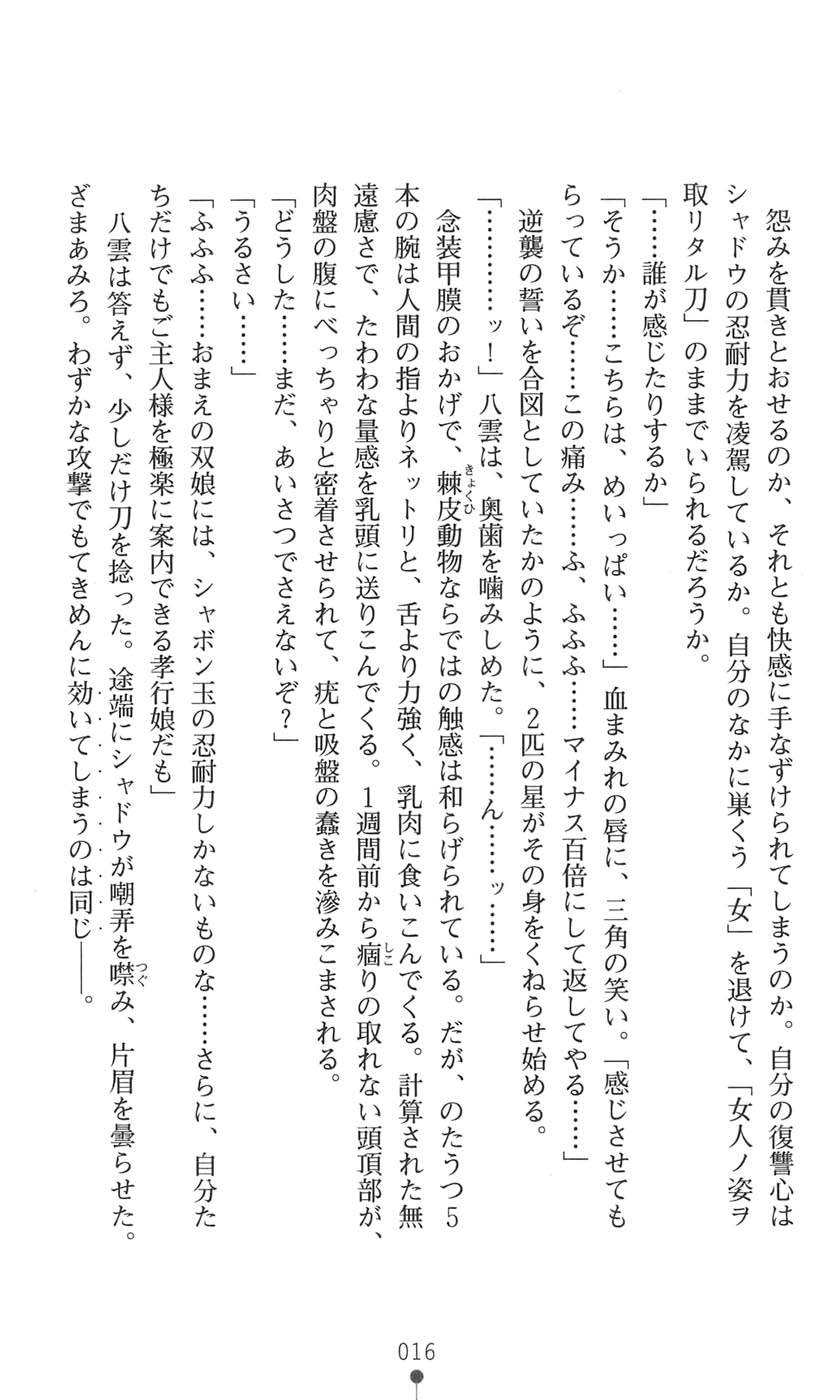 怨みを貫きとおせるのか、それとも快感に手なずけられてしまうのか。自分の復讐心は
シャドウの忍耐力を凌駕しているか。自分のなかに巣くう「女」を退けて、「女人ノ姿ヲ
取リタル刀」のままでいられるだろうか。
「……誰が感じたりするか」
「そうか……こちらは、めいっぱい……」血まみれの唇に、三角の笑い。「感じさせても
らっているぞ……この痛み……ふ、ふふふ……マイナス百倍にして返してやる……」
逆襲の誓いを合図としていたかのように、2匹の星がその身をくねらせ始める。
「…………ッ！」八雲は、奥歯を噛みしめた。「……ん……ッ……」
念装甲膜のおかげで、棘皮動物ならではの触感は和らげられている。だが、のたうつ5
本の腕は人間の指よりネットリと、舌より力強く、乳肉に食いこんでくる。計算された無
遠慮さで、たわわな量感を乳頭に送りこんでくる。1週間前から痼りの取れない頭頂部が、
肉盤の腹にべっちゃりと密着させられて、疣と吸盤の蠢きを滲みこまされる。
「どうした……まだ、あいさつでさえないぞ？」
「うるさい……」
「ふふふ……おまえの双娘には、シャボン玉の忍耐力しかないものな……さらに、自分た
ちだけでもご主人様を極楽に案内できる孝行娘だも」
八雲は答えず、少しだけ刀を捻った。途端にシャドウが嘲弄を噤み、片眉を曇らせた。
ざまあみろ。わずかな攻撃でもてきめんに効いてしまうのは同じ――。
016